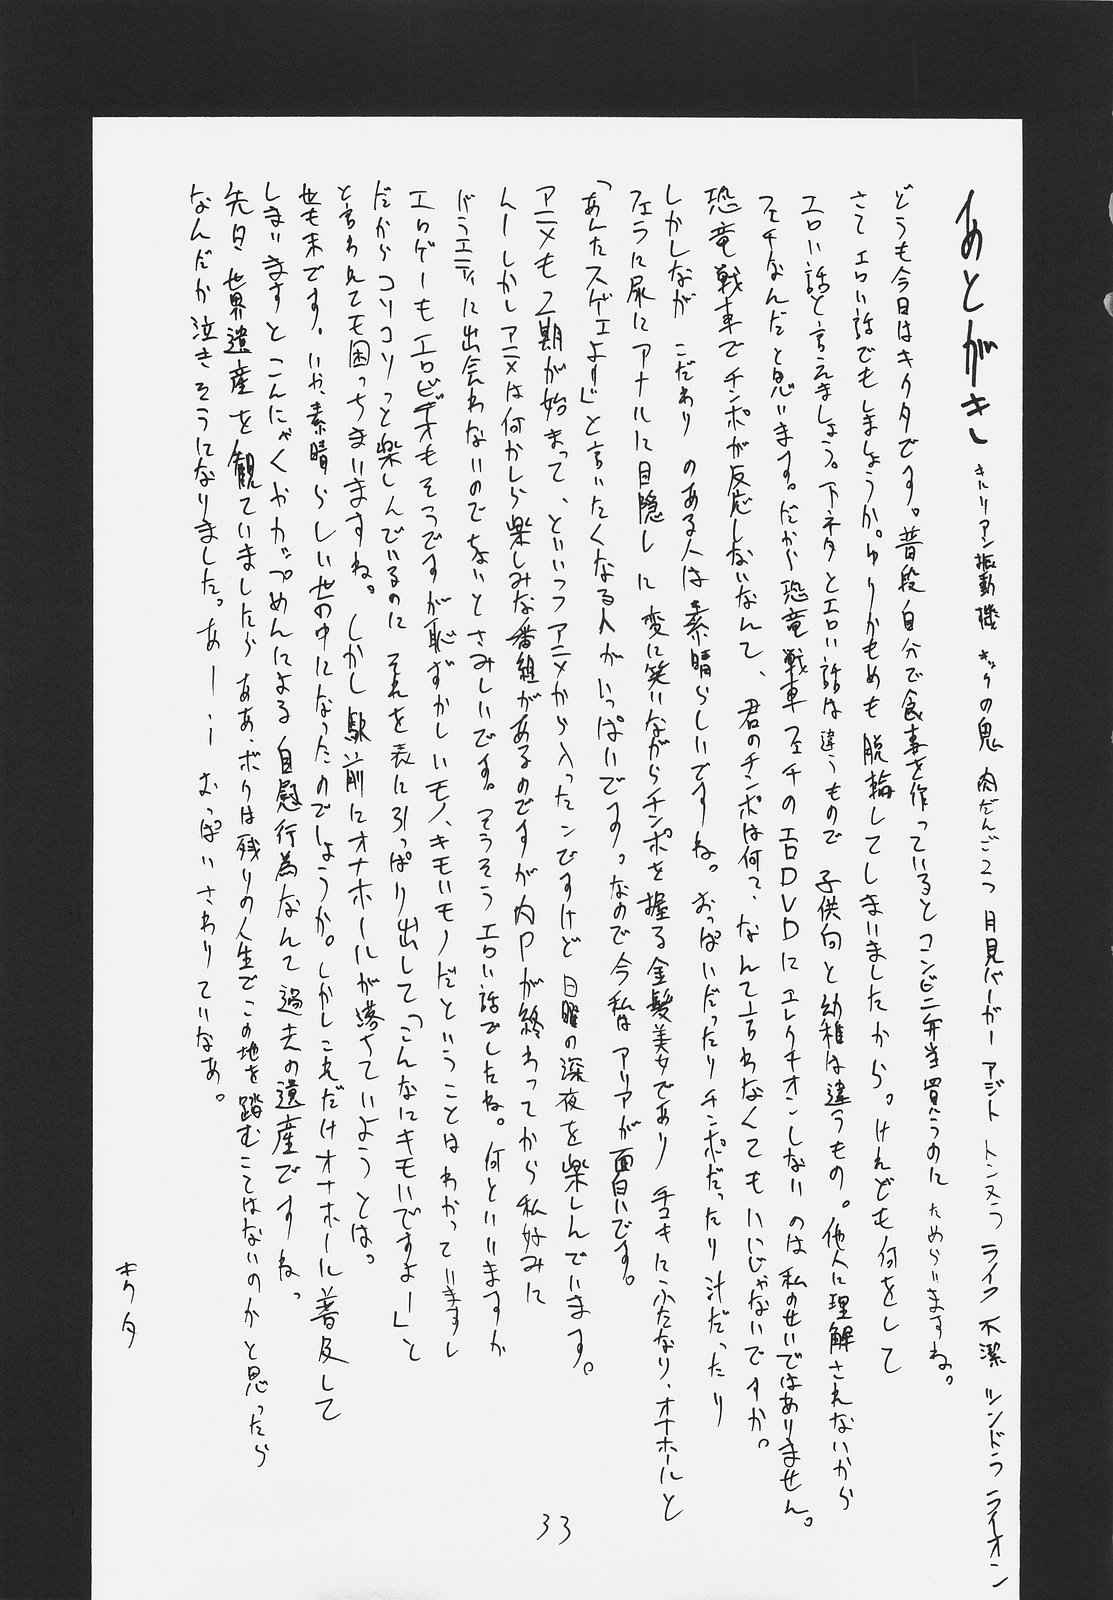 あとがき キルリアン振動機 キックの鬼 肉だんご2つ 月見バーガー アジト トンヌラ ライク 不潔 シンドラ ライオン
どうも今日はキクタです。普段自分で食事を作っているとコンビニ弁当買うのに ためらいますね。
さて エロい話でもしましょうか。ゆりかもめも脱輪してしまいましたから。けれども何をして
エロい話と言えましょう。下ネタとエロい話は違うもので 子供向と幼稚は違うもの。他人に理解されないから
フェチなんだと思います。だから恐竜戦車フェチのエロDVDにエレクチオンしないのは私のせいではありません。
恐竜戦車でチンポが反応しないなんて、君のチンポは何て、なんて言わなくてもいいじゃないですか。
しかしながら こだわり のある人は素晴らしいですね。おっぱいだったりチンポだったり汁だったり
フェラに尿にアナルに目隠し に 変に笑いながらチンポを握る金髪美女であり 手コキにふたなり、オナホールと
「あんたスゲェよ!」と言いたくなる人がいっぱいです。なので今私は アリアが面白いです。
アニメも2期が始まって、といってアニメから入ったンですけど 日曜の深夜を楽しんでいます。
んーしかしアニメは何かしら楽しみな番組があるのですが内Pが終わってから私好みに
バラエティに出会わないのでちょいとさみしいです。そうそう エロい話でしたね。何といいますか
エロゲーもエロビデオもそうですが恥ずかしいモノ、キモいモノだということはわかっていますし
だからコソコソっと楽しんでいるのに それを表に引っぱり出して「こんなにキモいですよー」と
言われても困っちまいますね。しかし 駅前にオナホールが落ちていようとは。
世も末です。いや、素晴らしい世の中になったのでしょうか。しかしこれだけオナホールに普及して
しまいますと こんにゃくやカップめんによる 自慰行為なんて過去の遺産ですね。
先日 世界遺産を観ていましたら ああ、ボクは残りの人生でこの地を踏むことはないのかと思ったら
なんだか泣きそうになりました。あー … おっぱいさわりていなあ。
キクタ
33